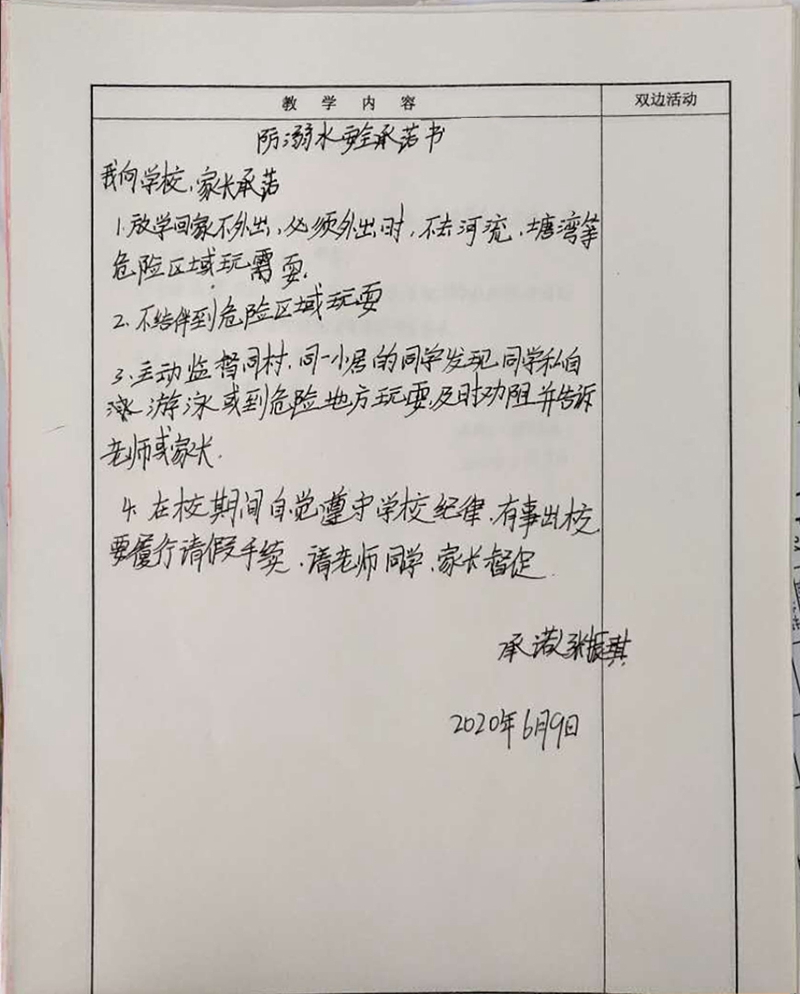 教 学 内 容
双边活动
防溺水安全承诺书
我向学校、家长承诺
1.放学回家不外出,必须外出时,不去河流、塘湾等
危险区域玩需耍.
2.不结伴到危险区域玩耍
3.主动监督同村、同一小居的同学发现同学私自
泳游泳或到危险地方玩耍,及时劝阻并告诉
老师或家长.
4.在校期间自觉遵守学校纪律,有事出校
要履行请假手续、请老师同学、家长督促.
承诺人张振琪
2020年6月9日